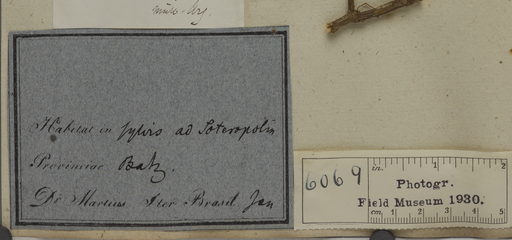 Habitat in sylvis ad Soteropolin
Provinciae Bah.
Dr. Martius Iter Brasil Jan
6069
in. 1 2
Photogr.
Field Museum 1930.
cm. 1 2 3 4 5